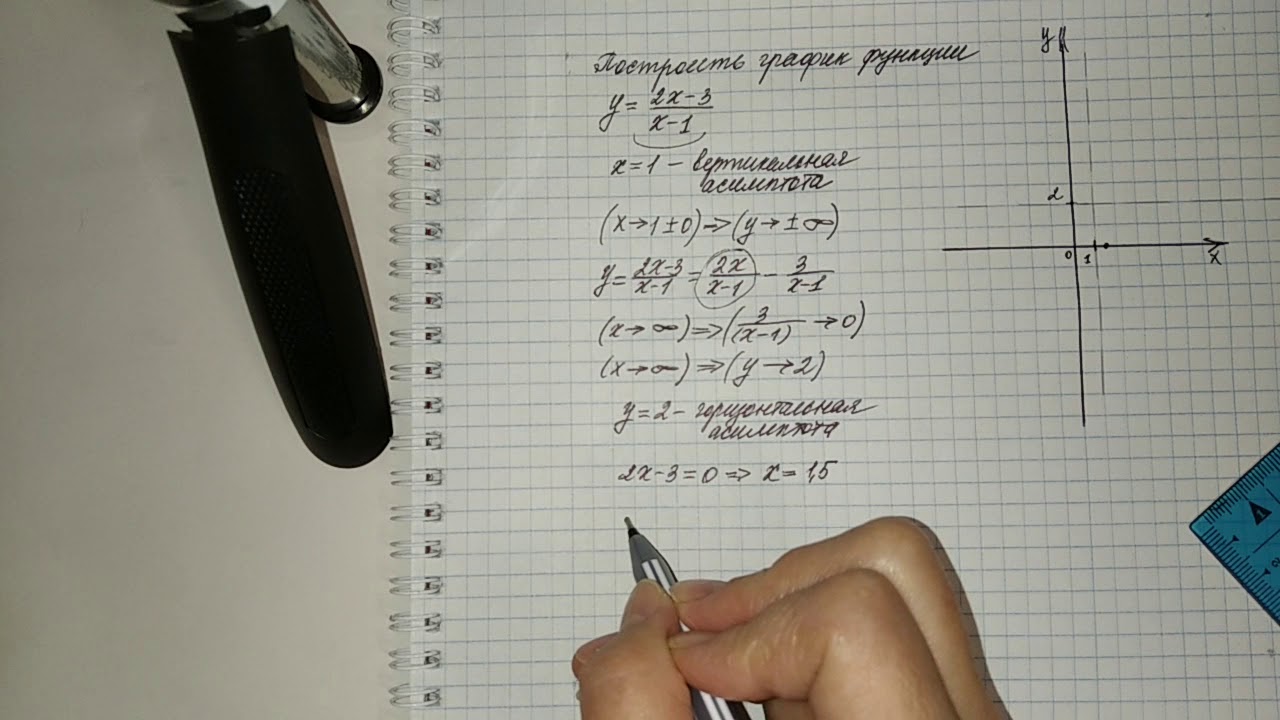 Построить график функции
y = 2x-3 / x-1
x = 1 - вертикальная
асимптота
(x→1±0) => (y→±∞)
y = 2x-3 / x-1 = 2x / x-1 - 3 / x-1
(x→∞) => (3 / (x-1) →0)
(x→∞) => (y→2)
y = 2 - горизонтальная
асимптота
2x-3=0 => x=1,5
y
2
0 1 x